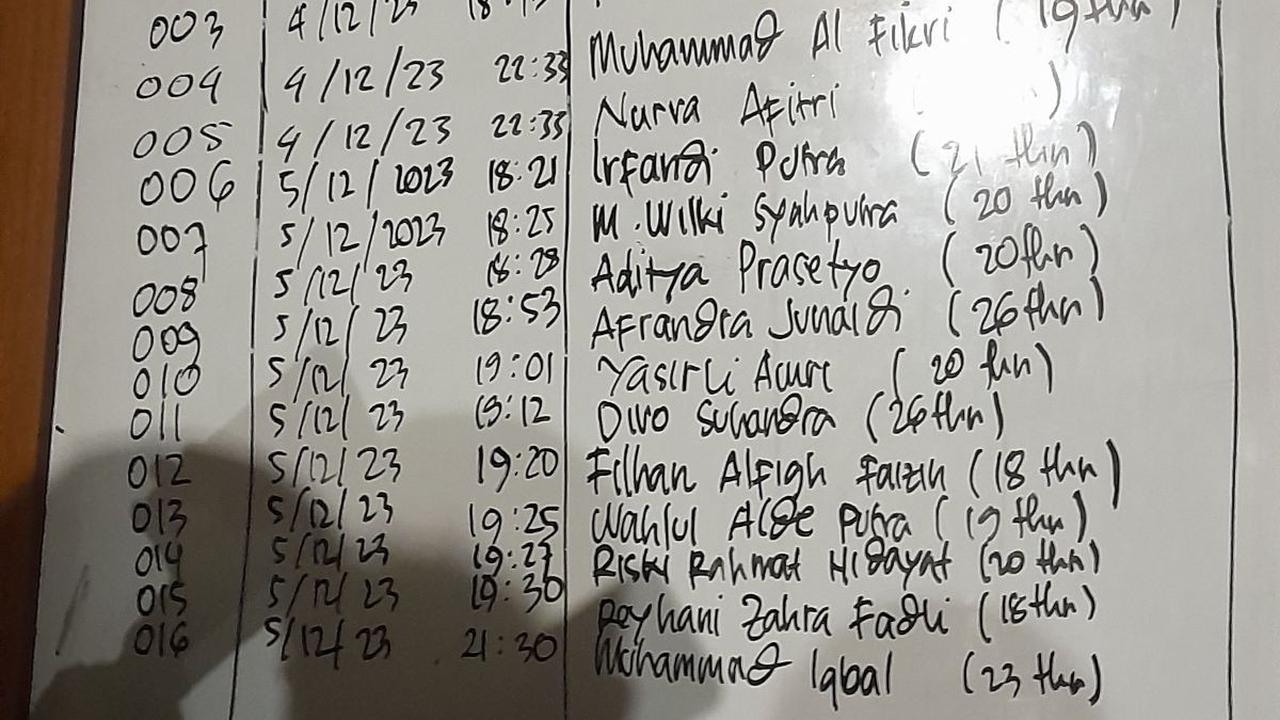 003 4/12/23 Muhammad Al Fikri (19 thn)
004 4/12/23 22:33 Nurva Afitri ( )
005 4/12/23 22:33 Irfandi Putra (21 thn)
006 5/12/2023 18:21 M. Wilki Syahputra (20 thn)
007 5/12/2023 18:25 Aditya Prasetyo (20 thn)
008 5/12/23 18:28 Afrandra Junaidi (26 thn)
009 5/12/23 18:53 Yasirli Amri (20 thn)
010 5/12/23 19:01 Divo Suhandra (26 thn)
011 5/12/23 19:12 Filhan Alfiqh Faizin (18 thn)
012 5/12/23 19:20 Wahlul Alde Putra (19 thn)
013 5/12/23 19:25 Riski Rahmat Hidayat (20 thn)
014 5/12/23 19:27 Reyhani Zahra Fadli (18 thn)
015 5/12/23 19:30 Muhammad Iqbal (23 thn)
016 5/12/23 21:30